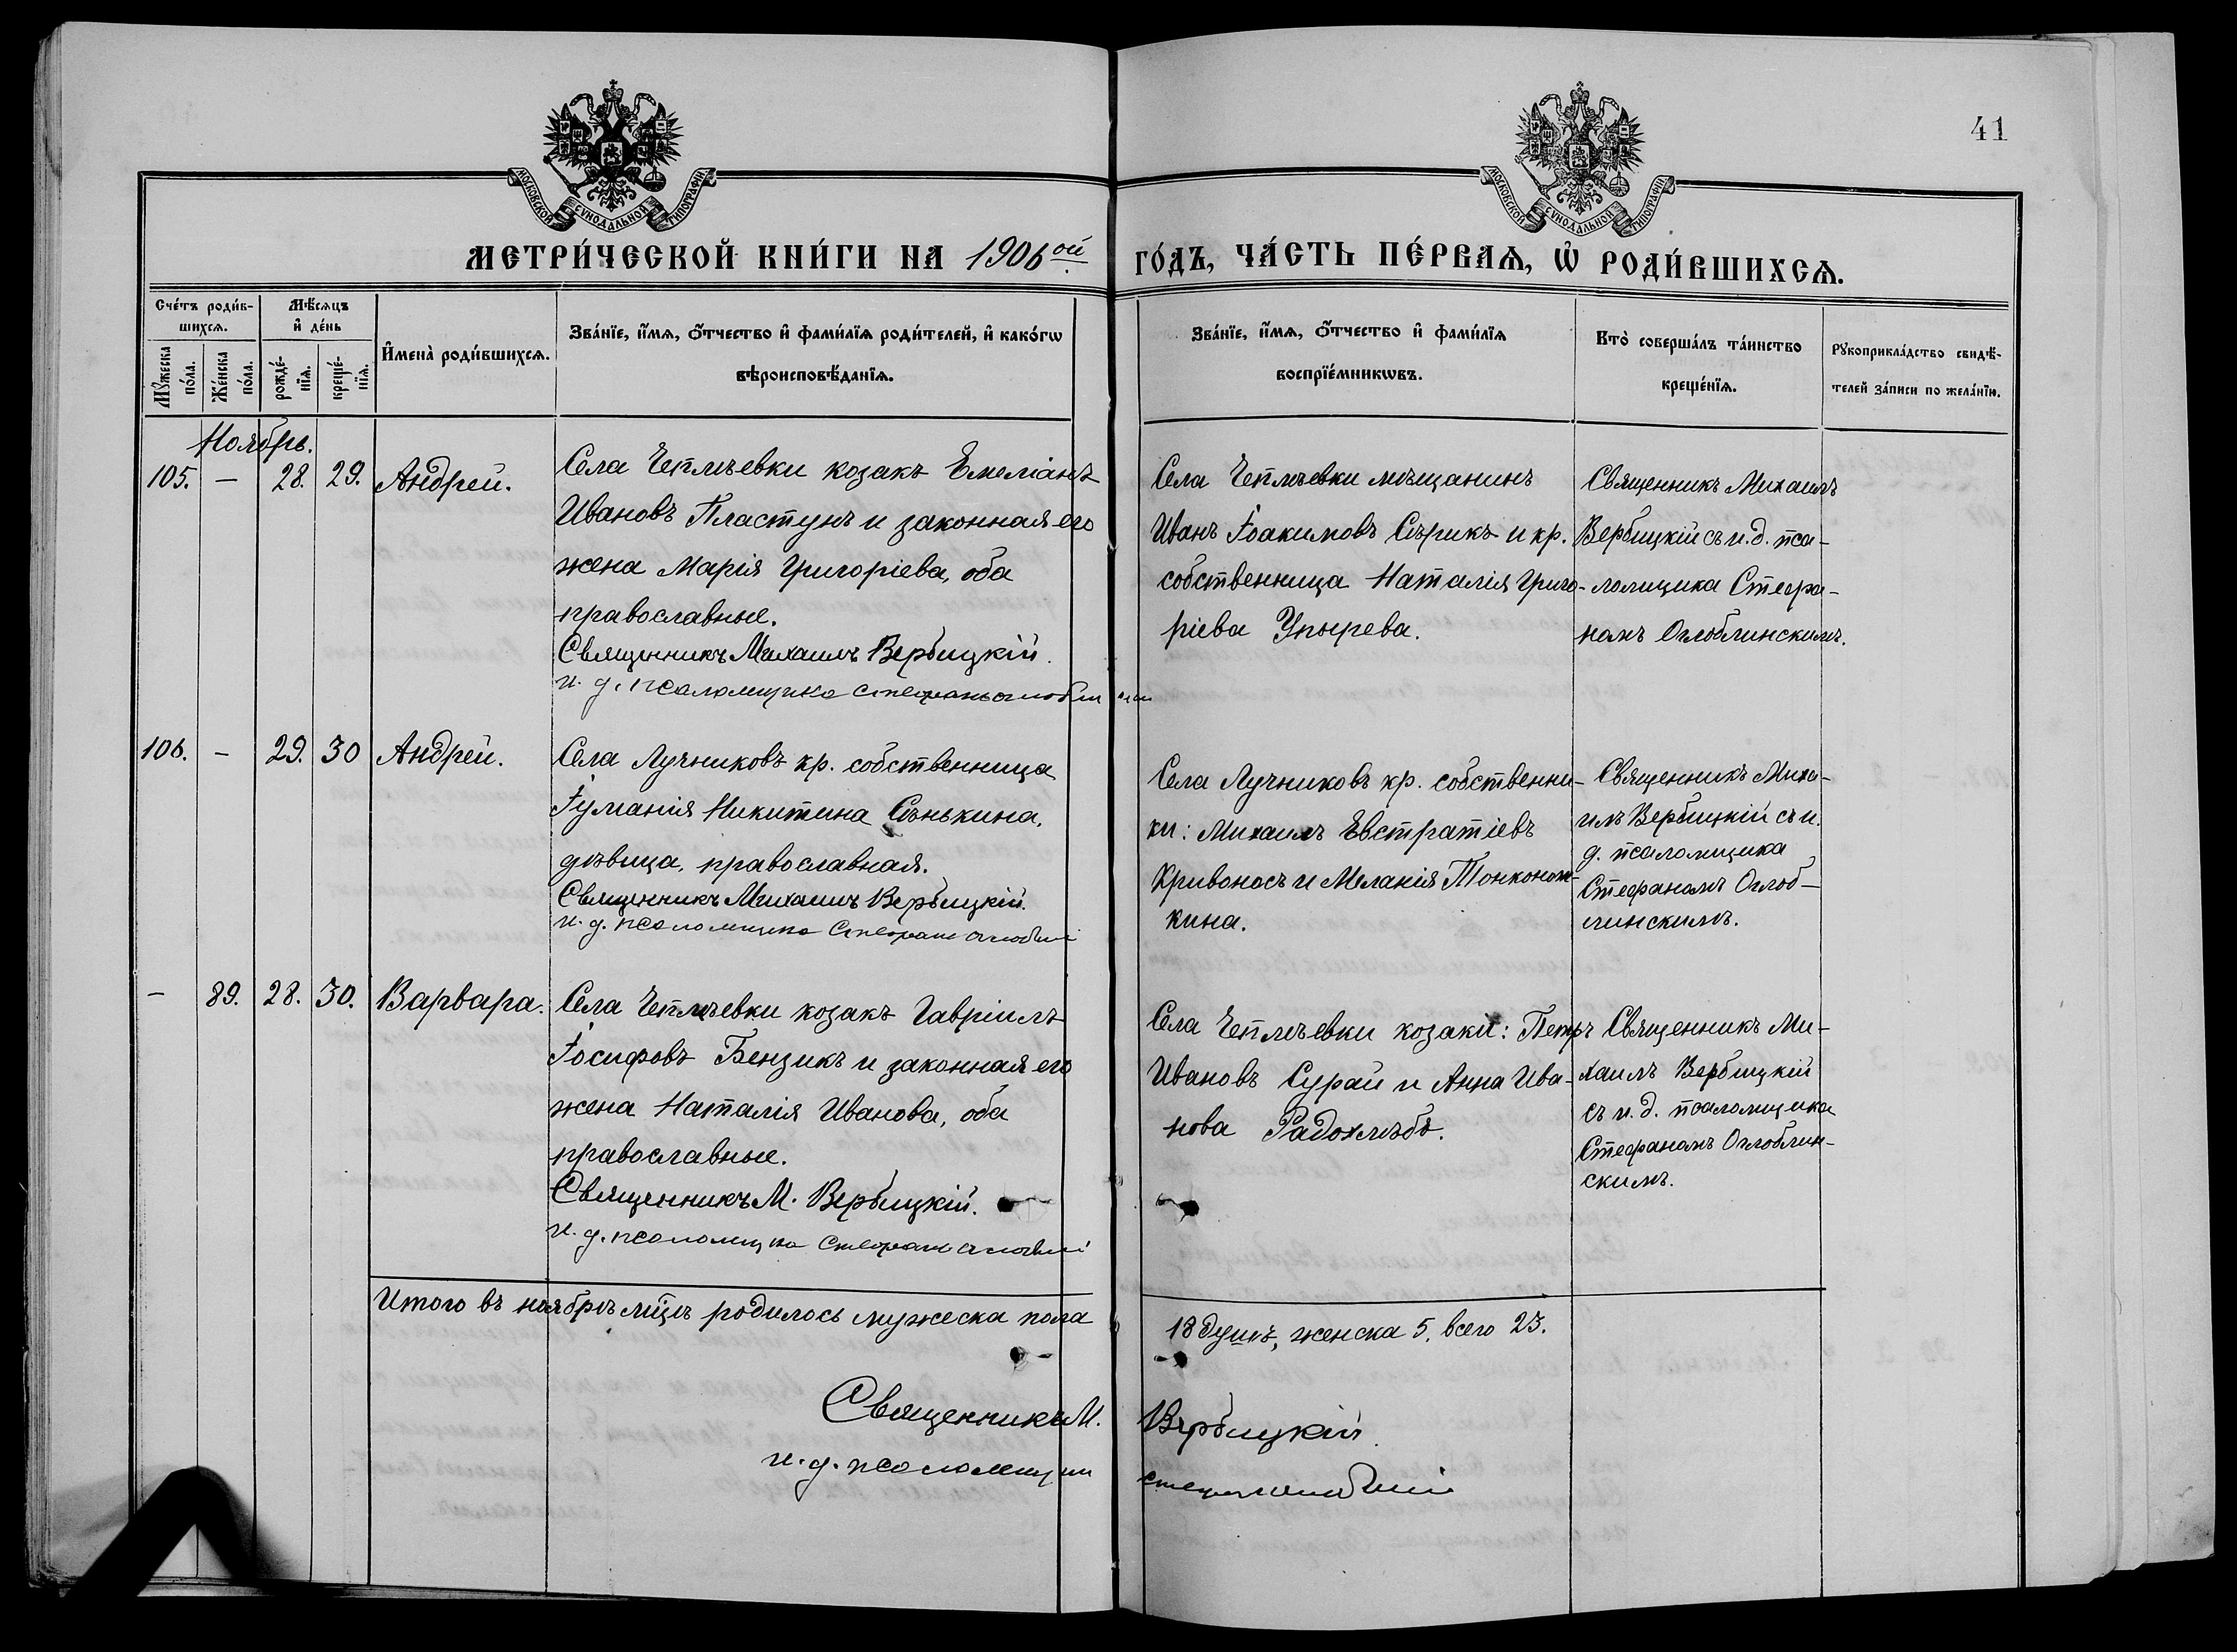 41
МОСКОВСКОЙ СѴНОДАЛЬНОЙ ТИПОГРАФІИ
МОСКОВСКОЙ СѴНОДАЛЬНОЙ ТИПОГРАФІИ
МЕТРИ́ЧЕСКОЙ КНИ́ГИ НА 1906ой
ГО́ДЪ, ЧА́СТЬ ПЕ́РВАѦ, Ѡ҆ РОДИ́ВШИХСѦ.
Сче́тъ роди́в-
шихсѧ.
Мꙋ́жеска по́ла.
Же́нска по́ла.
Мѣ́сѧцъ
и҆ де́нь
рожде́-
нїѧ.
креще́-
нїѧ.
И҆мена̀ роди́вшихсѧ.
Зва́нїе, и҆́мѧ, ѻ҆́тчество и҆ фами́лїѧ роди́телей, и҆ како́гѡ
вѣроисповѣ́данїѧ.
Зва́нїе, и҆́мѧ, ѻ҆́тчество и҆ фами́лїѧ
воспрїе́мникѡвъ.
Кто̀ соверша́лъ та́инство
креще́нїѧ.
Рꙋкоприкла́дство свидѣ́-
телей за́писи по жела́нїю.
Ноябрь.
105. — 28. 29. Андрей.
Села Чепмѣевки козакъ Емеліанъ
Ивановъ Пластунъ и законная его
жена Марія Григоріева, оба
православные.
Священникъ Михаилъ Вербицкій.
и. д. псаломщика Стефанъ
Села Чепмѣевки мѣщанинъ
Иванъ Іоакимовъ Сѣрикъ и кр.
собственница Наталія Григо-
ріева Упырева.
Священникъ Михаилъ
Вербицкій съ и. д. пса-
ломщика Стефа-
номъ Оглоблинскимъ.
106. — 29. 30 Андрей.
Села Лучниковъ кр. собственница
Іуліанія Никитина Сѣнькина,
дѣвица, православная.
Священникъ Михаилъ Вербицкій.
и. д. псаломщика Стефанъ
Села Лучниковъ кр. собственни-
ки: Михаилъ Евстратіевъ
Кривоносъ и Меланія Тонконож-
кина.
Священникъ Миха-
илъ Вербицкій съ и.
д. псаломщика
Стефаномъ Оглоб-
линскимъ.
— 89. 28. 30. Варвара.
Села Чепмѣевки козакъ Гавріилъ
Іосифовъ Бензикъ и законная его
жена Наталія Иванова, оба
православные.
Священникъ М. Вербицкій.
и. д. псаломщика Стефанъ
Села Чепмѣевки козаки: Петръ
Ивановъ Сурай и Анна Ива-
нова Радохлѣбъ.
Священникъ Ми-
хаилъ Вербицкій
съ и. д. псаломщика
Стефаномъ Оглоблин-
скимъ.
Итого въ ноябрѣ мѣцѣ родилось мужеска пола
18 душъ, женска 5, всего 23.
Священникъ М. Вербицкій
и. д. псаломщика